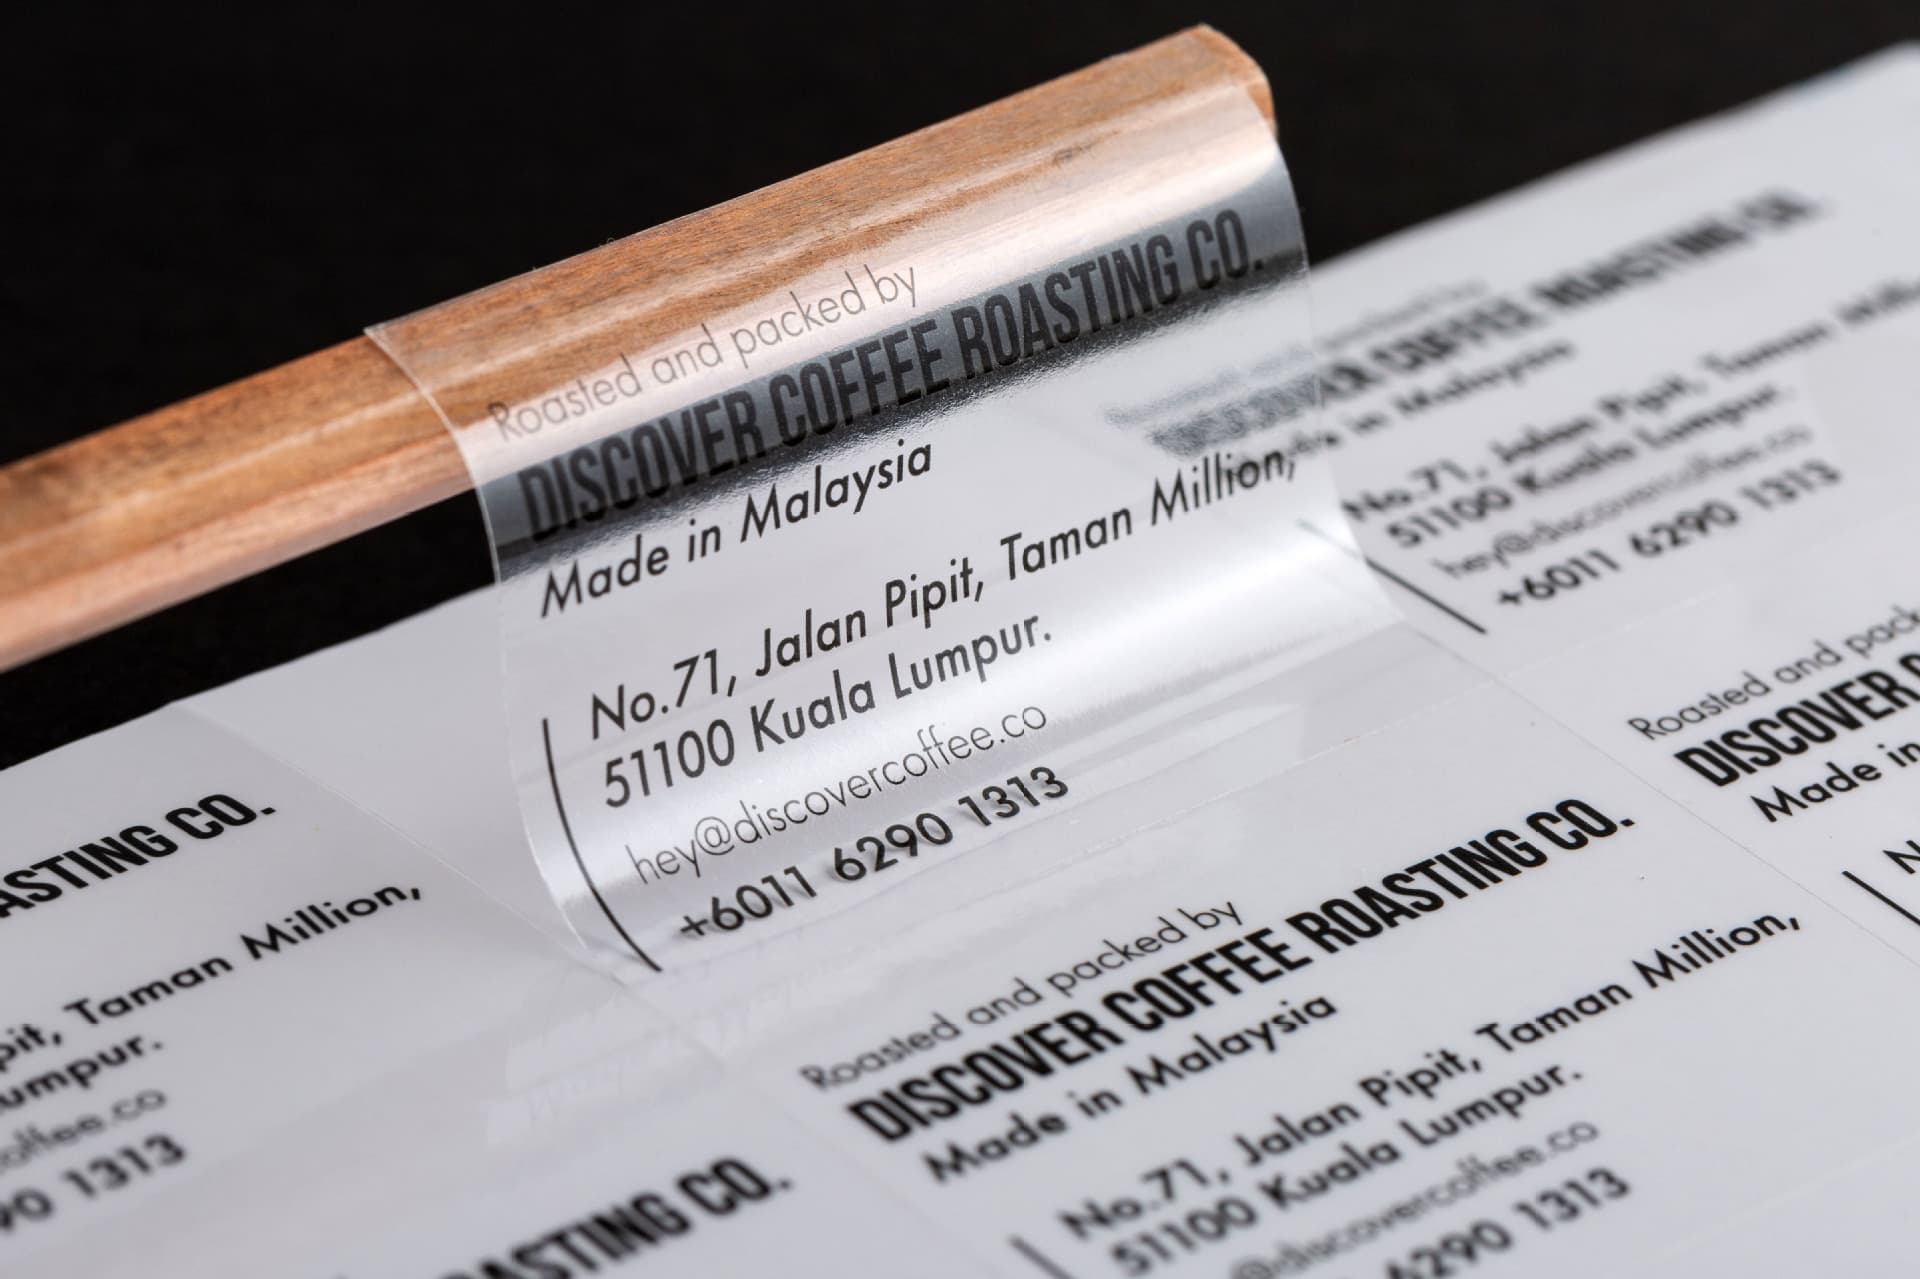 Roasted and packed by
DISCOVER COFFEE ROASTING CO.
Made in Malaysia
No.71, Jalan Pipit, Taman Million,
51100 Kuala Lumpur.
hey@discovercoffee.co
+6011 6290 1313
DISCOVER COFFEE ROASTING CO.
in Malaysia
No.71, Jalan Pipit, Taman
51100 Kuala Lumpur.
hey@discovercoffee.co
+6011 6290 1313
ASTING CO.
pit, Taman Million,
umpur.
offee.co
90 1313
Roasted and packed by
DISCOVER COFFEE ROASTING CO.
Made in Malaysia
No.71, Jalan Pipit, Taman Million,
51100 Kuala Lumpur.
@discovercoffee.co
6290 1313
Roasted and pack
DISCOVER
Made in
ASTING CO.